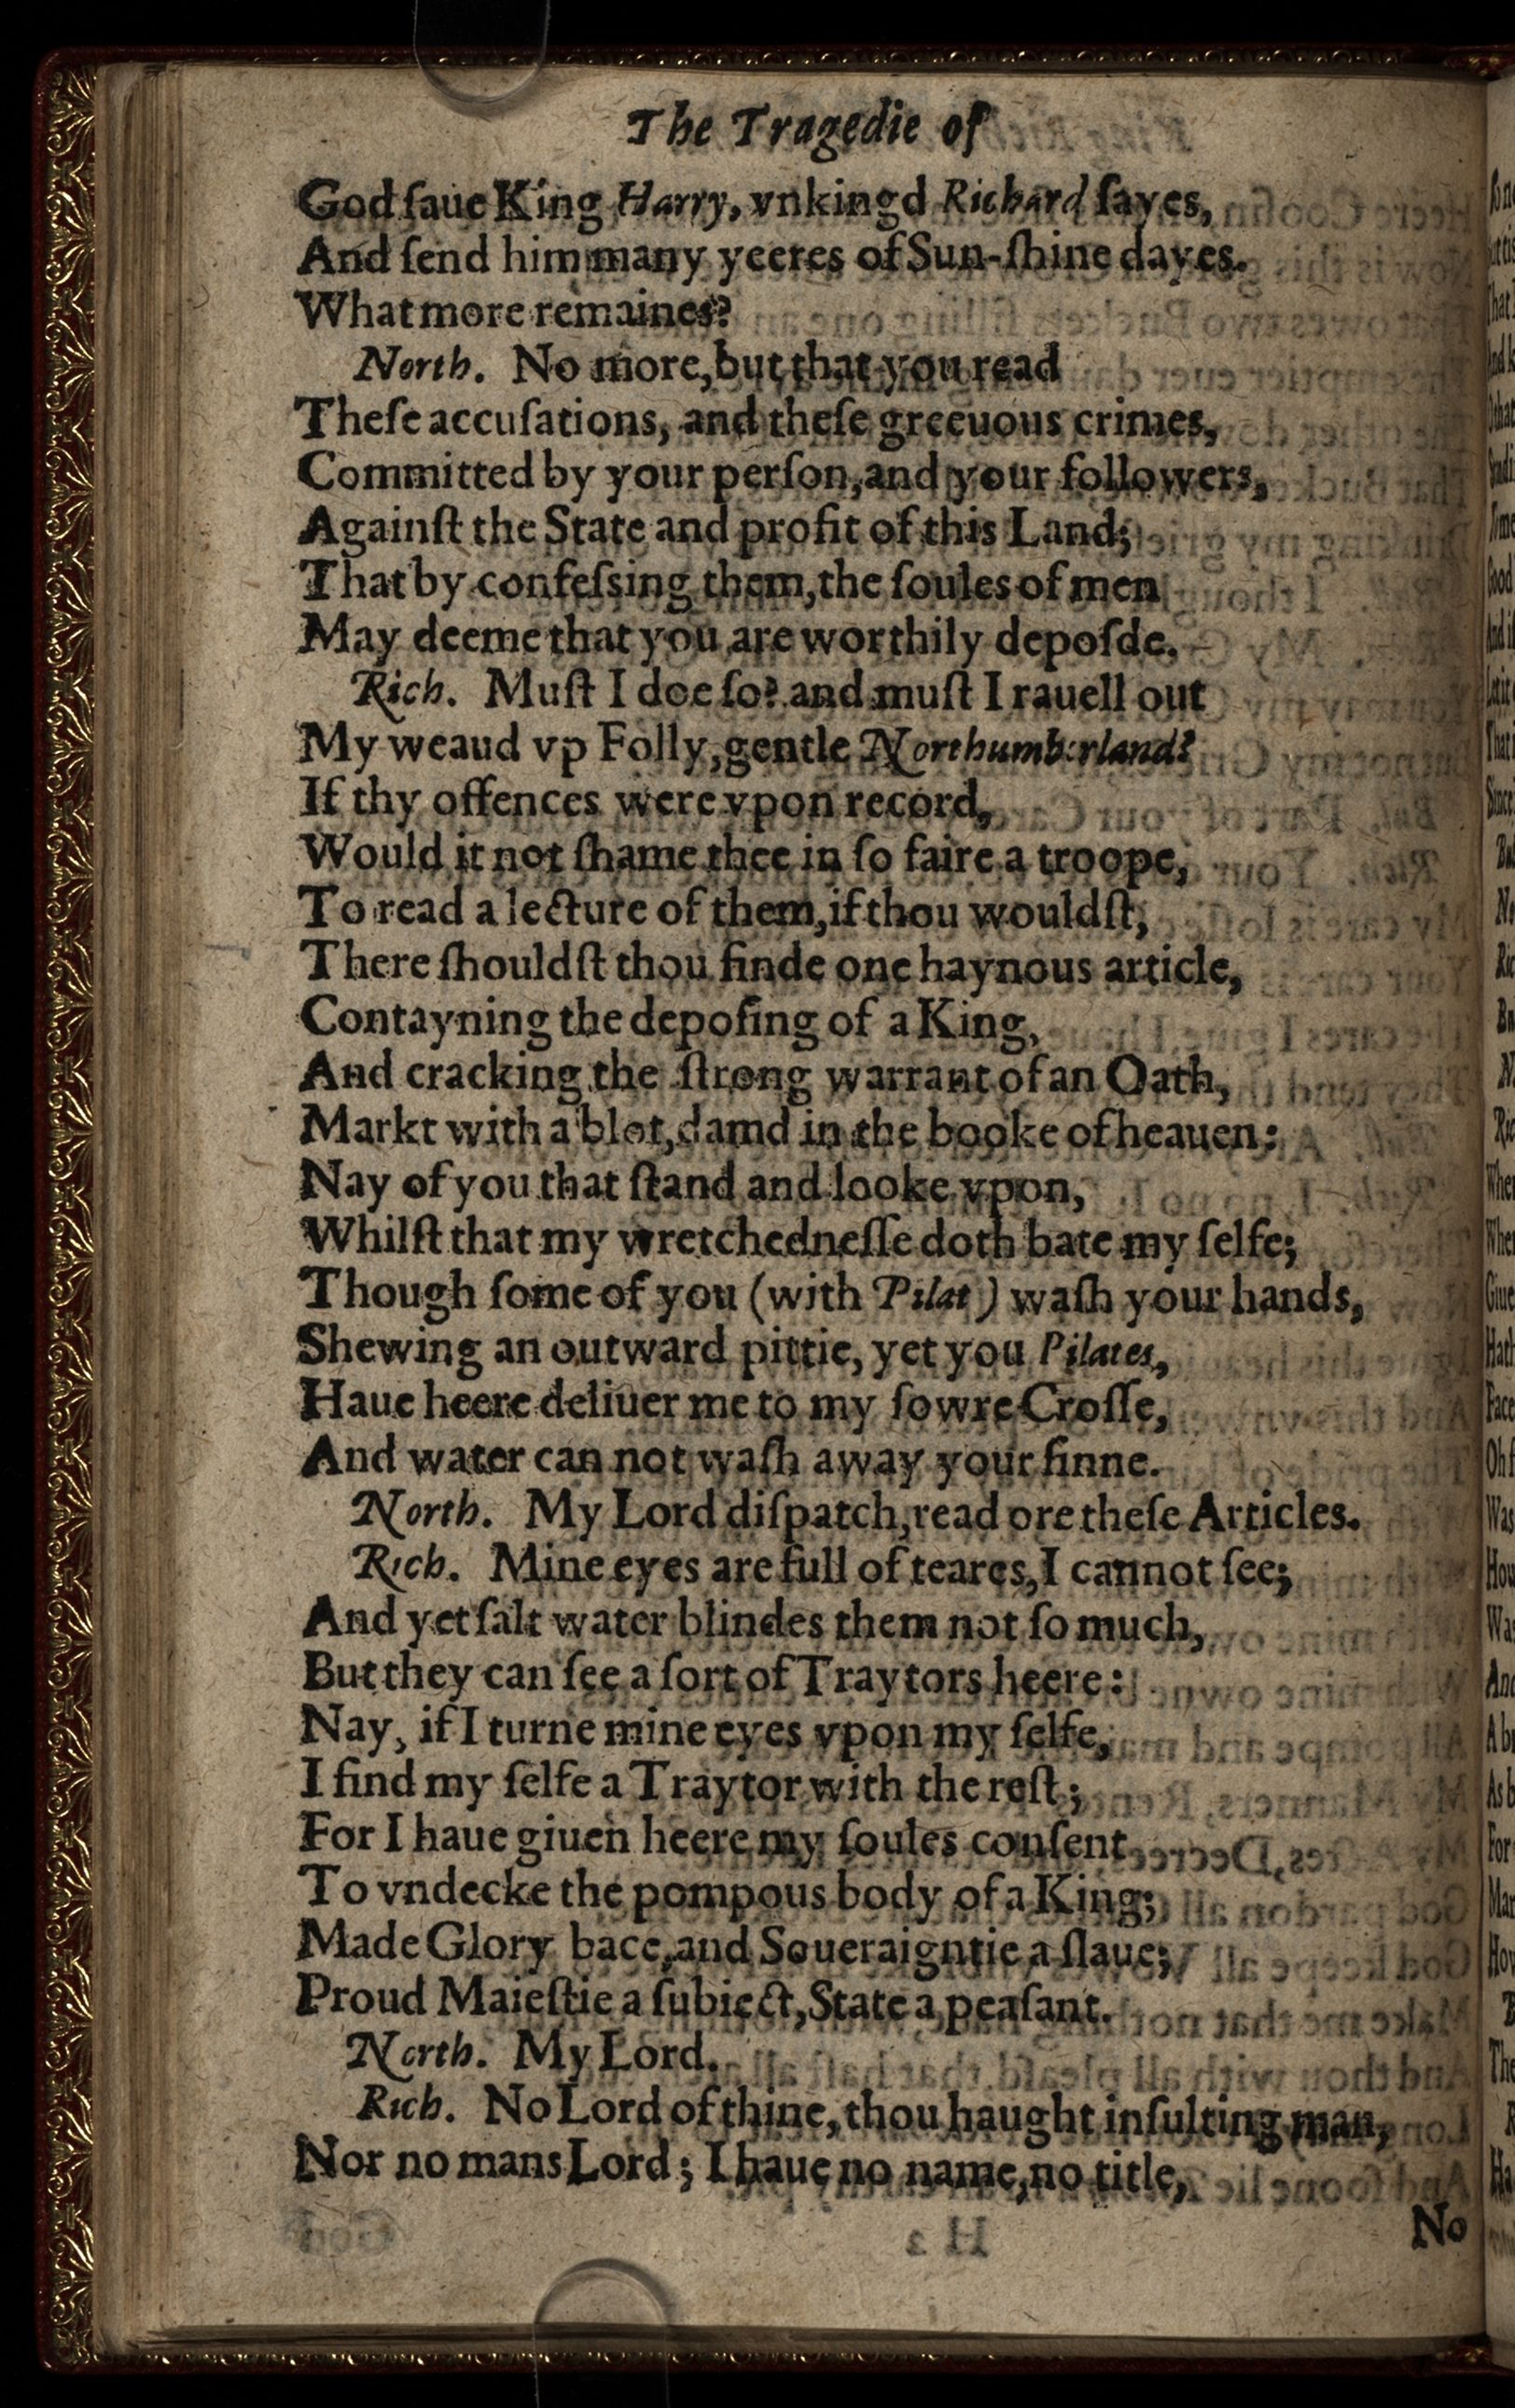 The Tragedie of
God ſaue King Harry, vnkingd Richard ſayes,
And ſend him many yeeres of Sun-ſhine dayes.
What more remaines?
North. No more, but that you read
Theſe accuſations, and theſe greeuous crimes,
Committed by your perſon, and your followers,
Againſt the State and profit of this Land;
That by confeſsing them, the ſoules of men
May deeme that you are worthily depoſde.
Rich. Muſt I doe ſo? and muſt I rauell out
My weaud vp Folly, gentle Northumberland?
If thy offences were vpon record,
Would it not ſhame thee in ſo faire a troope,
To read a lecture of them, if thou wouldſt,
There ſhouldſt thou finde one haynous article,
Contayning the depoſing of a King,
And cracking the ſtrong warrant of an Oath,
Markt with a blot, damd in the booke of heauen:
Nay of you that ſtand and looke vpon,
Whilſt that my wretchedneſſe doth bate my ſelfe;
Though ſome of you (with Pilat) waſh your hands,
Shewing an outward pittie, yet you Pilates,
Haue heere deliuer me to my ſowre Croſſe,
And water can not waſh away your ſinne.
North. My Lord diſpatch, read ore theſe Articles.
Rich. Mine eyes are full of teares, I cannot ſee;
And yet ſalt water blindes them not ſo much,
But they can ſee a ſort of Traytors heere:
Nay, if I turne mine eyes vpon my ſelfe,
I find my ſelfe a Traytor with the reſt;
For I haue giuen heere my ſoules conſent,
To vndecke the pompous body of a King;
Made Glory bace, and Soueraigntie a ſlaue;
Proud Maieſtie a ſubiect, State a peaſant.
North. My Lord.
Rich. No Lord of thine, thou haught inſulting man,
Nor no mans Lord; I haue no name, no title,
No